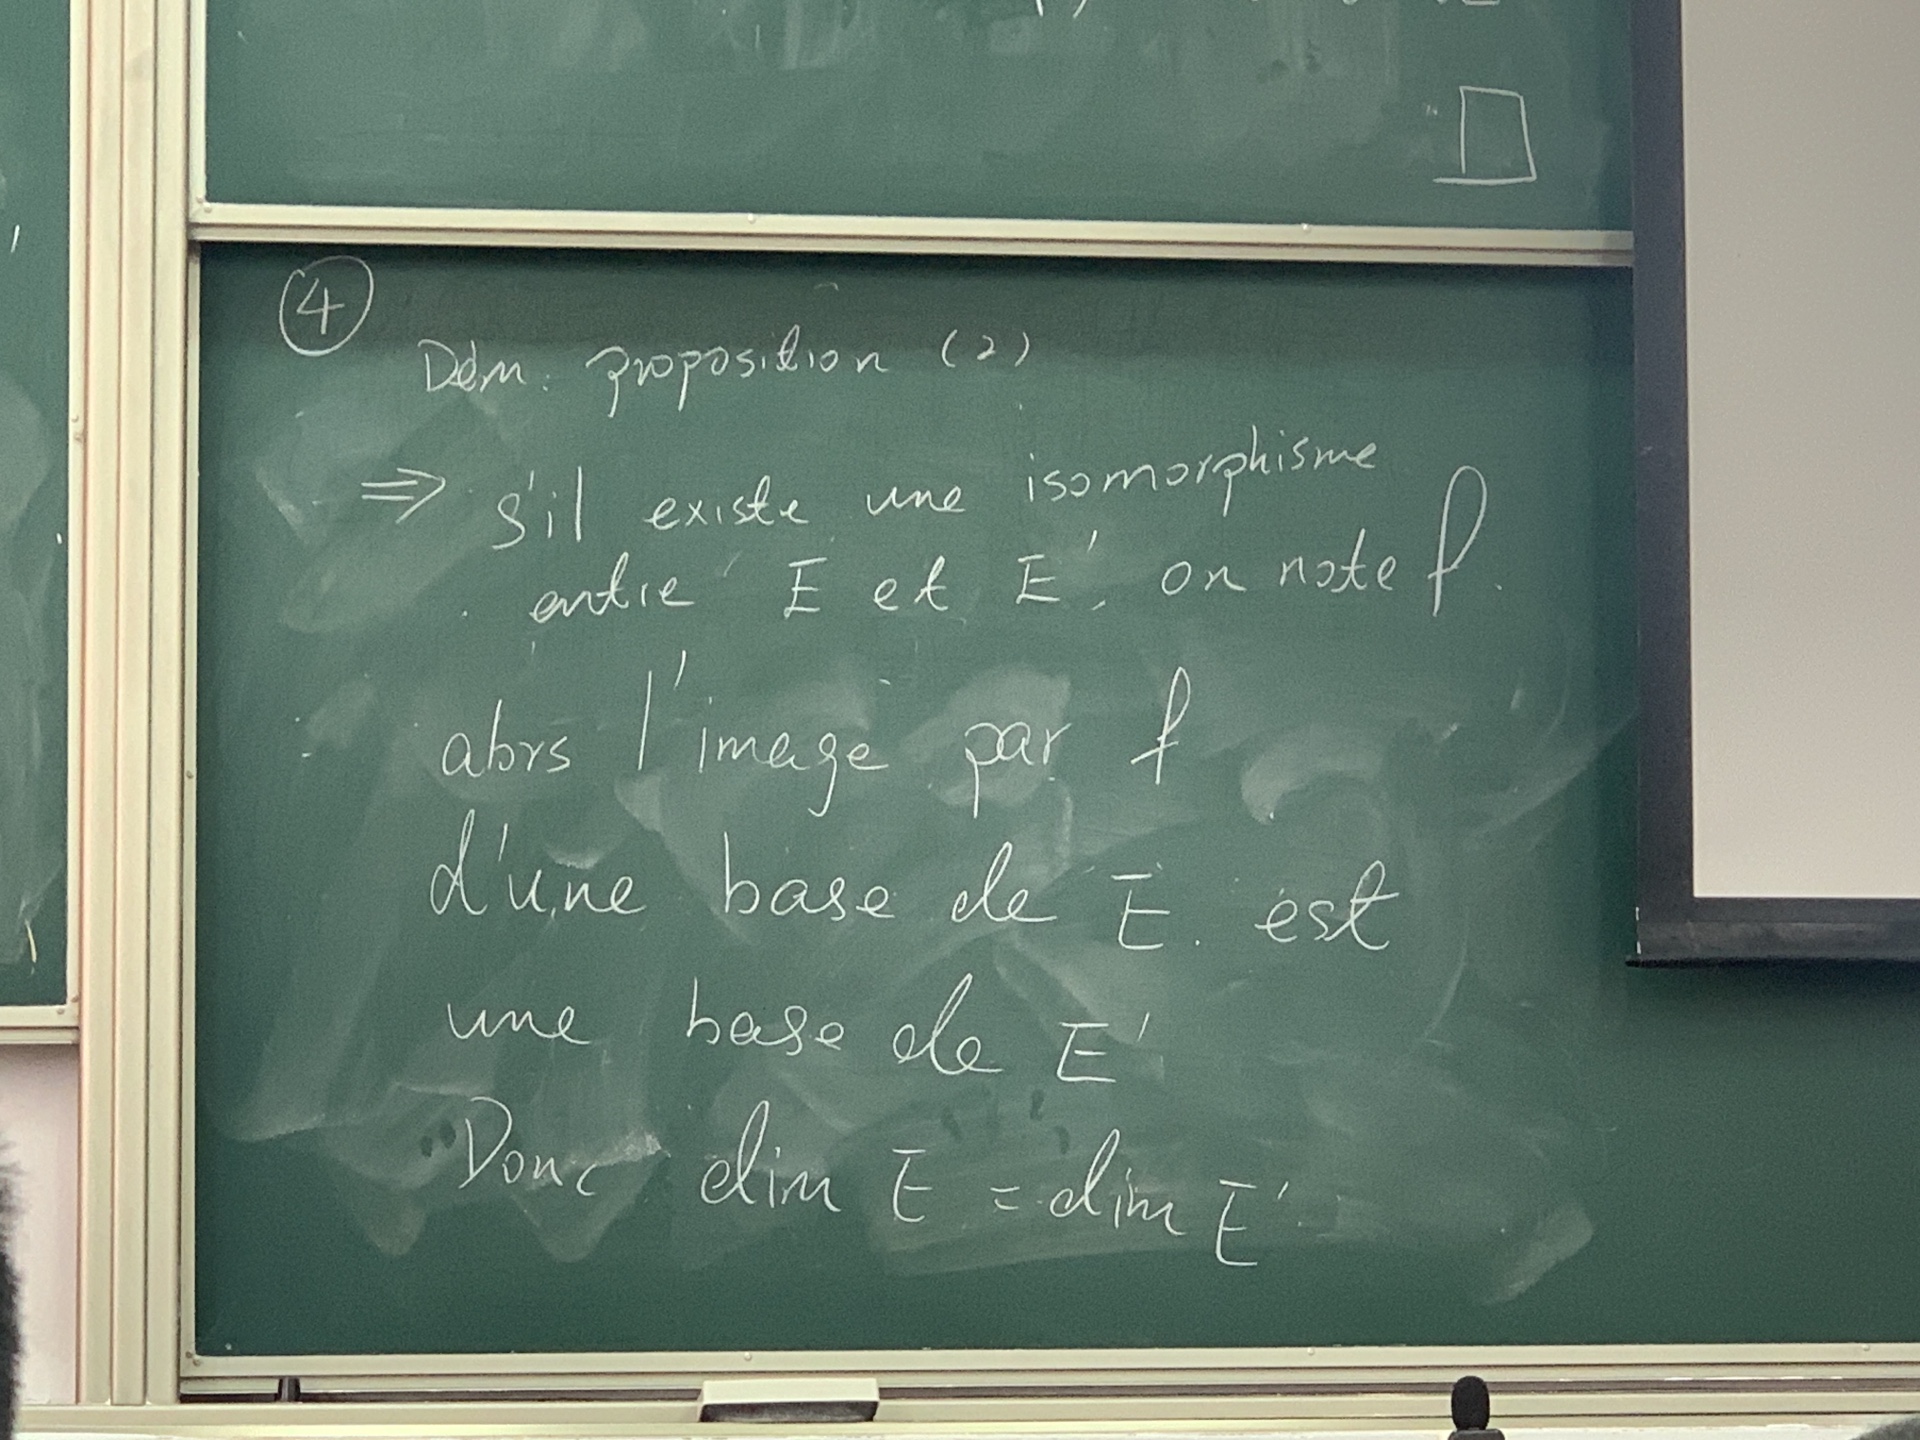 ④
Dém. proposition (2)
⇒ s'il existe une isomorphisme
entre E et E', on note f.
alors l'image par f
d'une base de E est
une base de E'
Donc dim E = dim E'